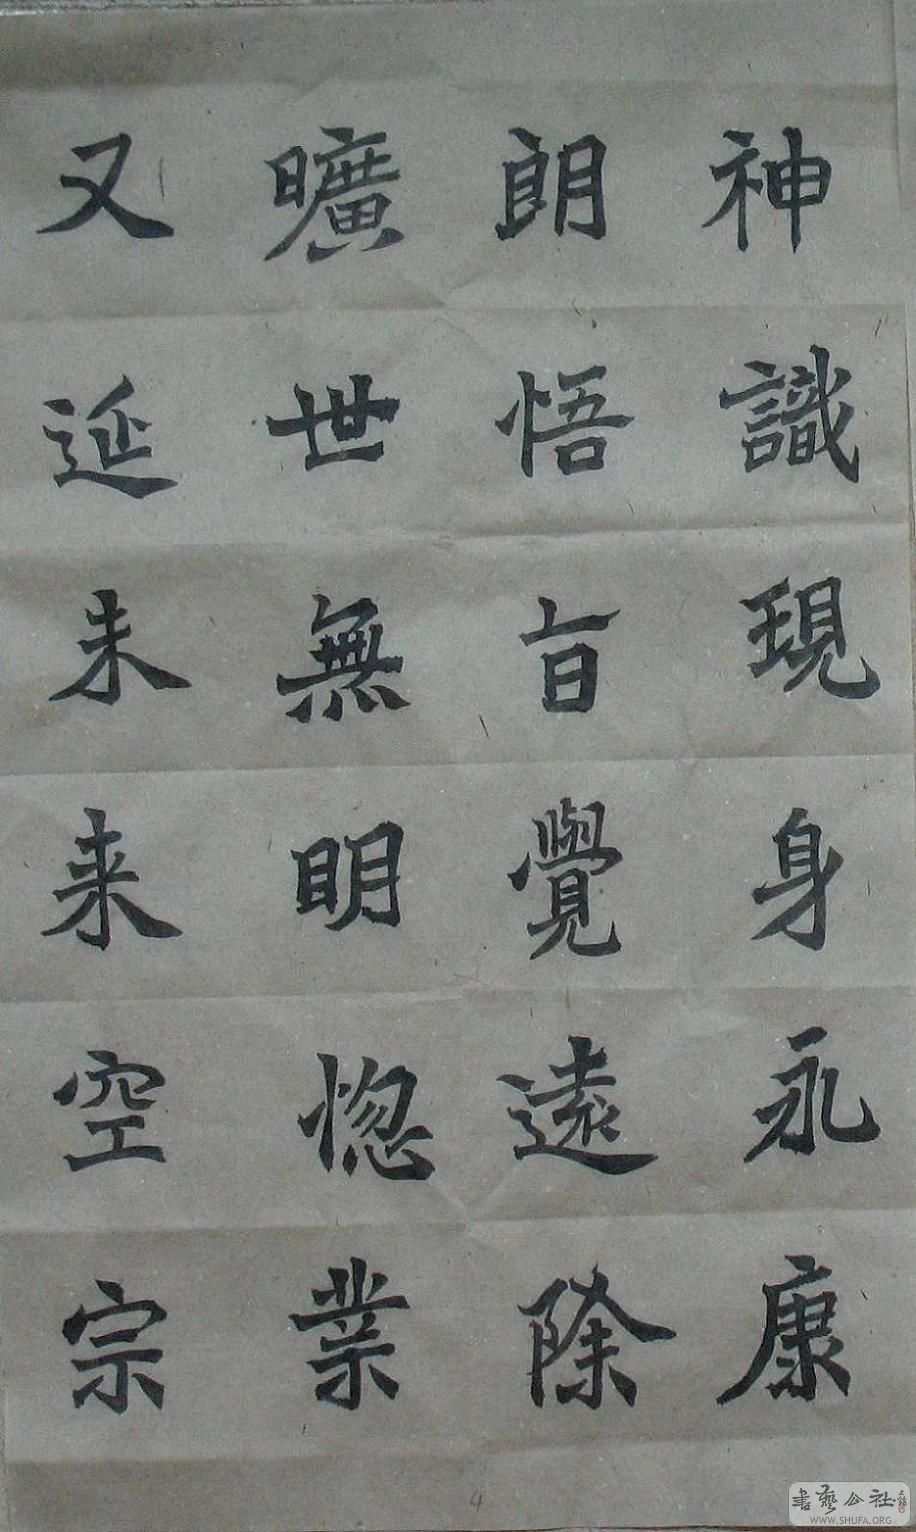 神識現身永康
朗悟旨覺遠除
曠世無明惚業
又延未来空宗
4
書藝公社
WWW.SHUFA.ORG